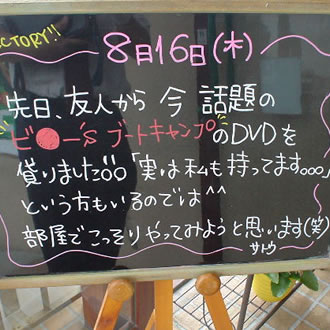 CTORY!!
8月16日(木)
先日、友人から 今 話題の
ビ●ー'S ブートキャンプのDVDを
借りました。「実は私も持ってます。。。」
という方もいるのでは^^
部屋でこっそりやってみようと思います(笑)
サトウ